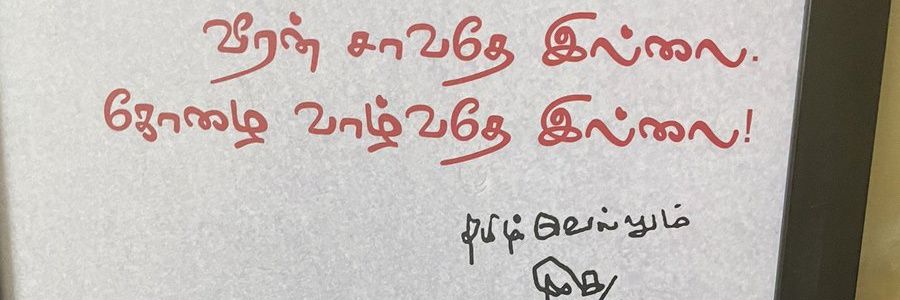 வீரன் சாவதே இல்லை.
கோழை வாழ்வதே இல்லை!
தமிழ் வெல்லும்